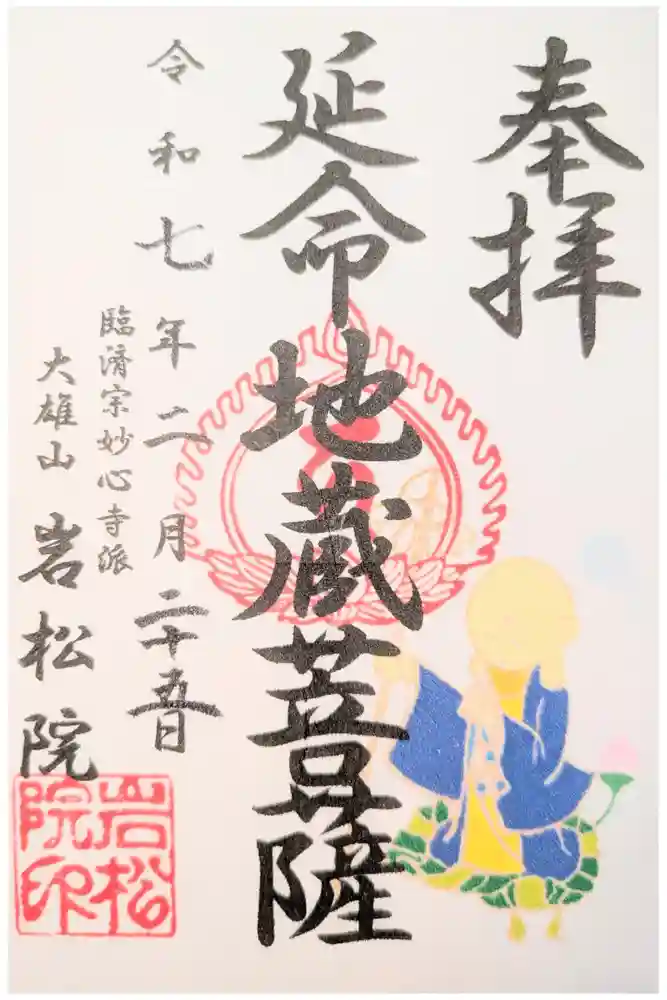 奉拝
延命地蔵菩薩
令和七年二月二十五日
臨済宗妙心寺派
大雄山 岩松院
岩松院印